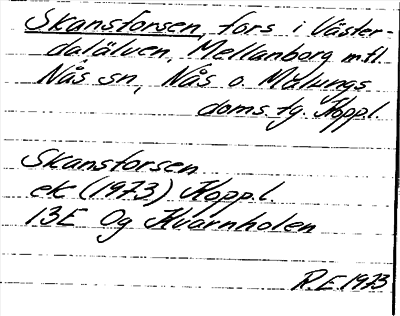 Skansforsen, fors i Väster-
dalälven, Mellanborg m fl.
Nås sn, Nås o. Malungs
doms. tg. Kopp l.
Skansforsen
ek (1973) Kopp. l.
13E 0g Kvarnholen
R.E 1973